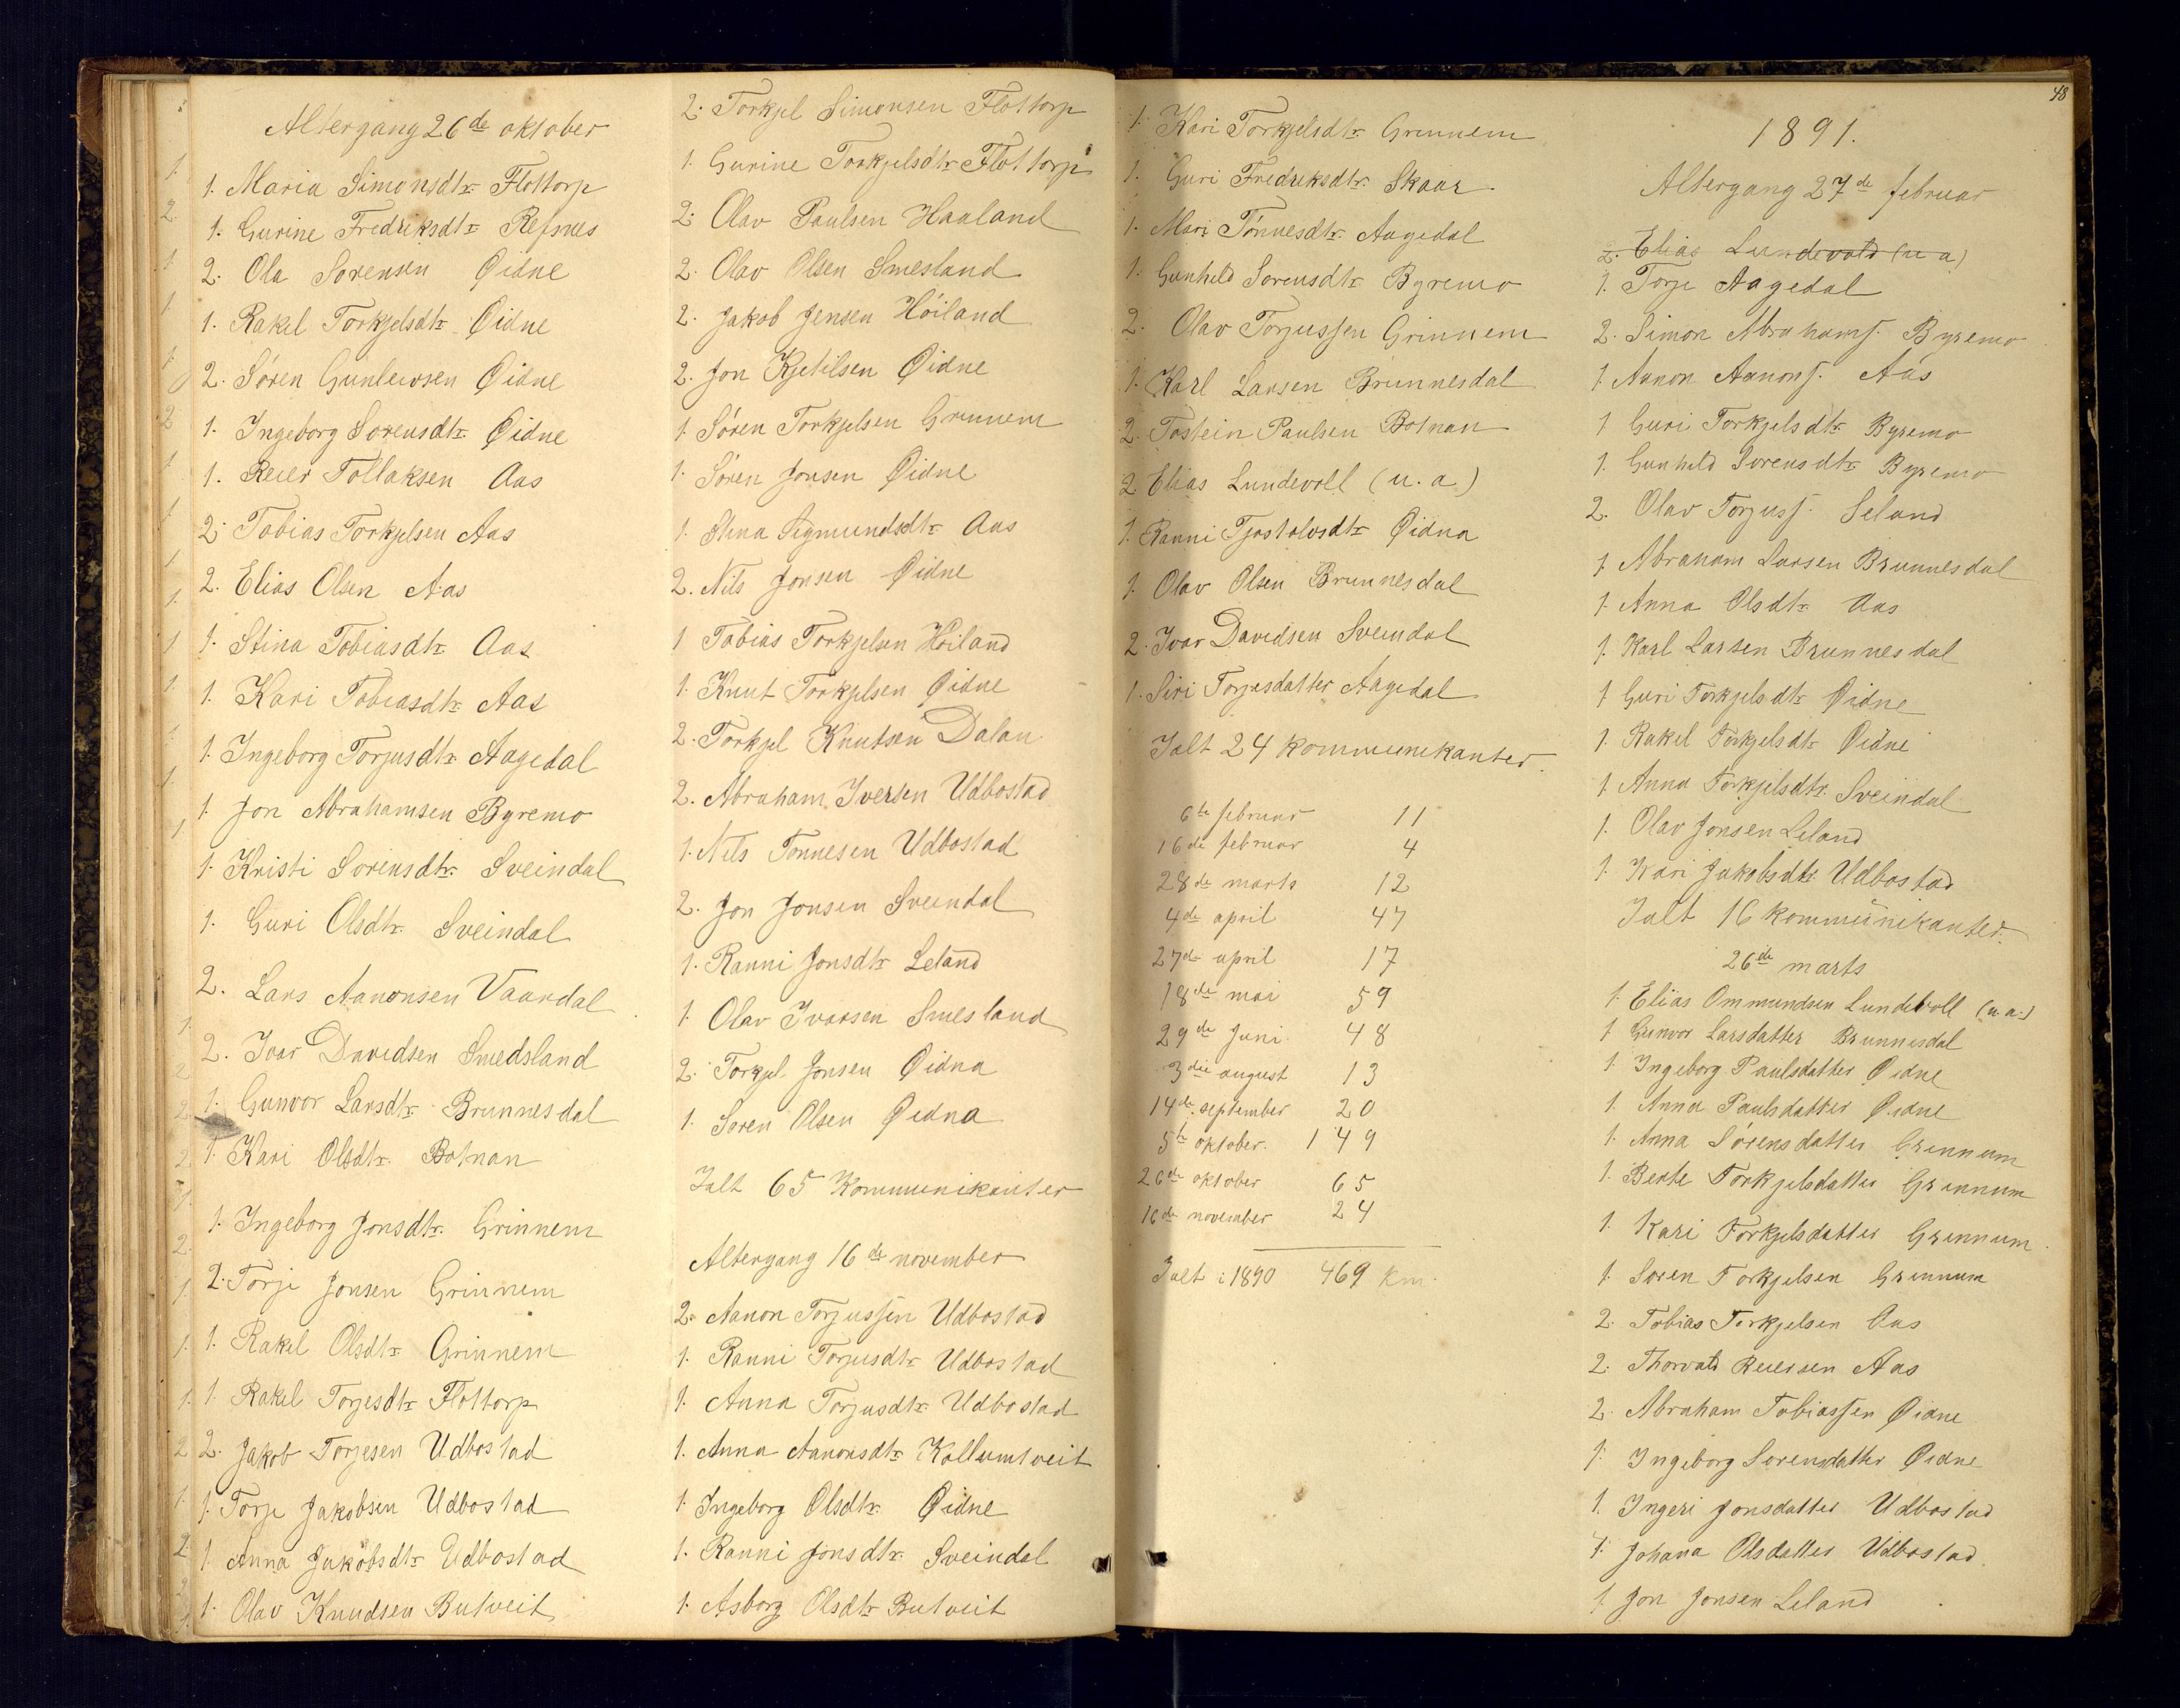 Altergang 26de oktober
1. Maria Simonsdtr. Flottorp
1. Gurine Fredriksdtr Refsnes
2. Ola Sørensen Øidne
1. Rakel Torkjelsdtr. Øidne
2. Søren Gunleivsen Øidne
1. Ingeborg Sørensdtr. Øidne
1. Reier Tollaksen Aas
2. Tobias Torkjelsen Aas
2. Elias Olsen Aas
1. Stina Tobiasdtr. Aas
1. Kari Tobiasdtr. Aas
1. Ingeborg Torjusdtr. Aagedal
1. Jon Abrahamsen Byremo
1. Kristi Sørensdtr. Sveindal
1. Guri Olsdtr. Sveindal
2. Lars Aanonsen Vaardal
2. Ivar Davidsen Smedsland
1. Gunvor Larsdtr. Brunnesdal
1. Kari Olsdtr. Botnan
1. Ingeborg Jonsdtr. Grinnem
2. Torje Jonsen Grinnem
1. Rakel Olsdtr Grinnem
1. Rakel Torjesdtr Flottorp
2. Jakob Torjesen Udbostad
1. Torje Jakobsen Udbostad
1 Anna Jakobsdtr Udbostad
1. Olav Knudsen Butveit
2. Torkjel Simonsen Flottorp
1. Gurine Torkjelsdtr Flottorp
2. Olav Paulsen Haaland
2. Olav Olsen Smesland
2. Jakob Jensen Høiland
2. Jon Kjetilsen Øidne
1. Søren Torkjelsen Grinnem
1. Søren Jonsen Øidne
1. Stina Sigmundsdtr Aas
2. Nils Jonsen Øidne
1 Tobias Torkjelsen Høiland
1. Knut Torkjelsen Øidne
2. Torkjel Knutsen Dalan
2. Abraham Iversen Udbostad
1. Nils Tønnesen Udbostad
2. Jon Jonsen Sveindal
1. Ranni Jonsdtr Leland
1. Olav Ivarsen Smesland
2. Torkjel Jonsen Øidna
1. Søren Olsen Øidna
Ialt 65 Kommunikanter
Altergang 16de november
2. Aanon Torjussen Udbostad
1. Ranni Torjusdtr Udbostad
1. Anna Torjusdtr. Udbostad
1. Anna Aanonsdtr. Kollumtveit
1. Ingeborg Olsdtr. Øidne
1. Ranni Jonsdtr. Sveindal
1. Asborg Olsdtr Butveit
1. Kari Torkjelsdtr. Grinnem
1. Guri Fredriksdtr. Skaar
1. Mari Tønnesdtr. Aagedal
1. Gunhild Sørensdtr. Byremo
2. Olav Torjussen Grinnem
1. Karl Larsen Brunnesdal
2. Tostein Paulsen Botnan
2 Elias Lundevoll (u.a.)
1. Ranni Tjostolvsdtr Øidna
1. Olav Olsen Brunnesdal
2. Ivar Davidsen Sveindal
1. Siri Torjesdatter Aagedal
Ialt 24 kommunikanter.
6te februar 11
16de februar 4
28de marts 12
4de april 47
27de april 17
18de mai 59
29de Juni 48
3die august 13
14de september 20
5te oktober. 149
26de oktober 65
16de november 24
Ialt i 1890 469 km.
48
1891.
Altergang 27de februar
2. Elias Lundevold (u a)
1. Torje Aagedal
2. Simon Abrahams. Byremo
1. Aanon Aanons. Aas
1 Guri Torkjelsdtr. Byremo
1. Gunhild Sørensdtr. Byremo
2. Olav Torjuss. Seland
1. Abraham Larsen Brunnesdal
1. Anna Olsdtr. Aas
1. Karl Larsen Brunnesdal
1 Guri Torkjelsdtr Øidne
1. Rakel Torkjelsdtr. Øidne
1. Anna Torkjelsdtr. Sveindal
1. Olav Jonsen Leland
1. Kari Jakobsdtr. Udbostad
Ialt 16 kommunikanter.
26de marts
1. Elias Ommundsen Lundevoll (u.a.)
1 Gunvor Larsdatter Brunnesdal
1. Ingeborg Paulsdatter Øidne
1. Anna Paulsdatter Øidne
1. Anna Sørensdatter Grennum
1. Berte Torkjelsdatter Grennum
1. Kari Torkjelsdatter Grennum
1. Søren Torkjelsen Grennum
2. Tobias Torkjelsen Aas
2. Thorvald Reiersen Aas
2. Abraham Tobiassen Øidne
1. Ingeborg Sørensdatter Øidne
1. Ingeri Jonsdatter Udbostad
1. Johana Olsdatter Udbostad
1. Jon Jonsen Leland